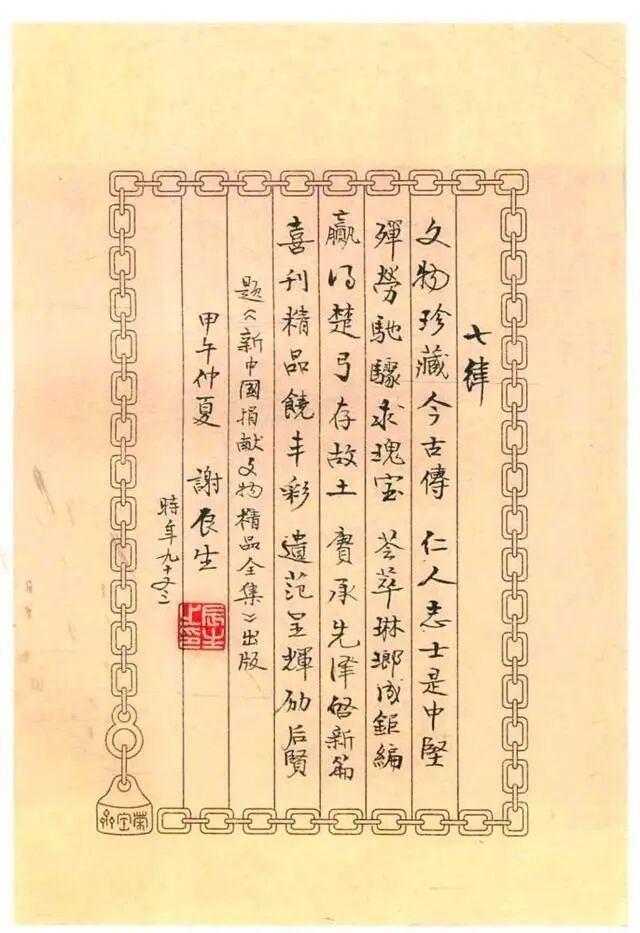 七律
文物珍藏今古傳 仁人志士是中堅
殫勞馳驟求瑰宝 荟萃琳瑯成鉅編
贏得楚弓存故土 賡承先泽啓新篇
喜刊精品饒丰彩 遺范呈輝励后賢
題《新中國捐献文物精品全集》出版
甲午仲夏 謝辰生
時年九十又三
辰生之印